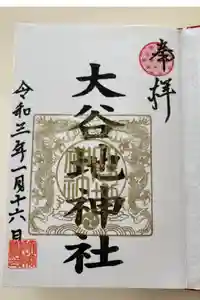 奉拝
大谷地神社
令和三年一月十六日